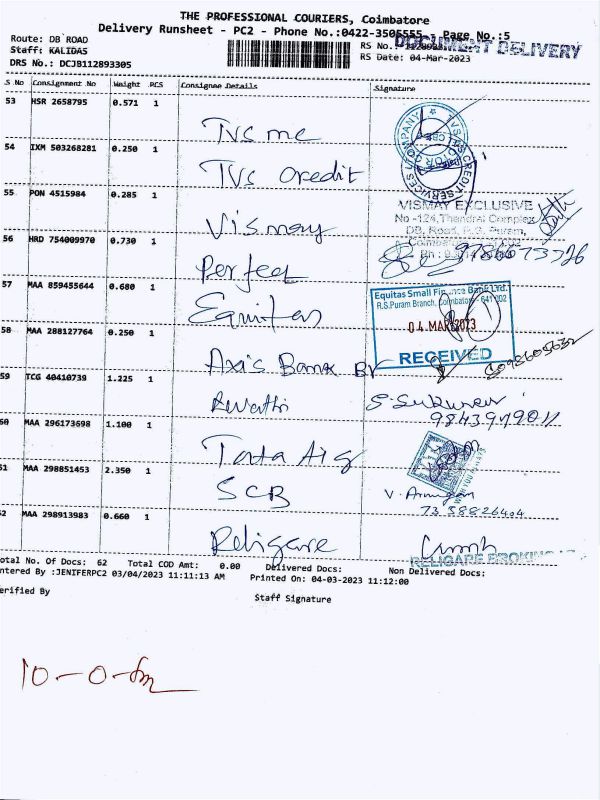 THE PROFESSIONAL COURIERS, Coimbatore
Delivery Runsheet - PC2 - Phone No.:0422-3505555 - Page No.:5
Route: DB ROAD
RS No.:
DOCUMENT DELIVERY
Staff: KALIDAS
RS Date: 04-Mar-2023
DRS No.: DCJB112893305
S No Consignment No Weight PCS Consignee Details Signature
53 HSR 2658795 0.571 1
Tvs me
54 IXM 503268281 0.250 1
Tvs credit
55 PON 4515984 0.285 1
Vismay
VISMAY EXCLUSIVE
No -124,Thendral Complex
DB, Road, R.S. Puram,
56 HRD 754009970 0.730 1
Perfect
57 MAA 859455644 0.680 1
Equitas
Equitas Small Finance Bank Ltd.
R.S.Puram Branch, Coimbatore - 641 002
04 MAR 2023
RECEIVED
58 MAA 288127764 0.250 1
Axis Bank
59 TCG 40410739 1.225 1
Revathi
60 MAA 296173698 1.100 1
Tata Aig
61 MAA 298851453 2.350 1
SCB
V. Arumugam
62 MAA 298913983 0.660 1
Religare
RELIGARE BROKING
Total No. Of Docs: 62 Total COD Amt: 0.00 Delivered Docs: Non Delivered Docs:
Entered By :JENIFERPC2 03/04/2023 11:11:13 AM Printed On: 04-03-2023 11:12:00
Verified By
Staff Signature